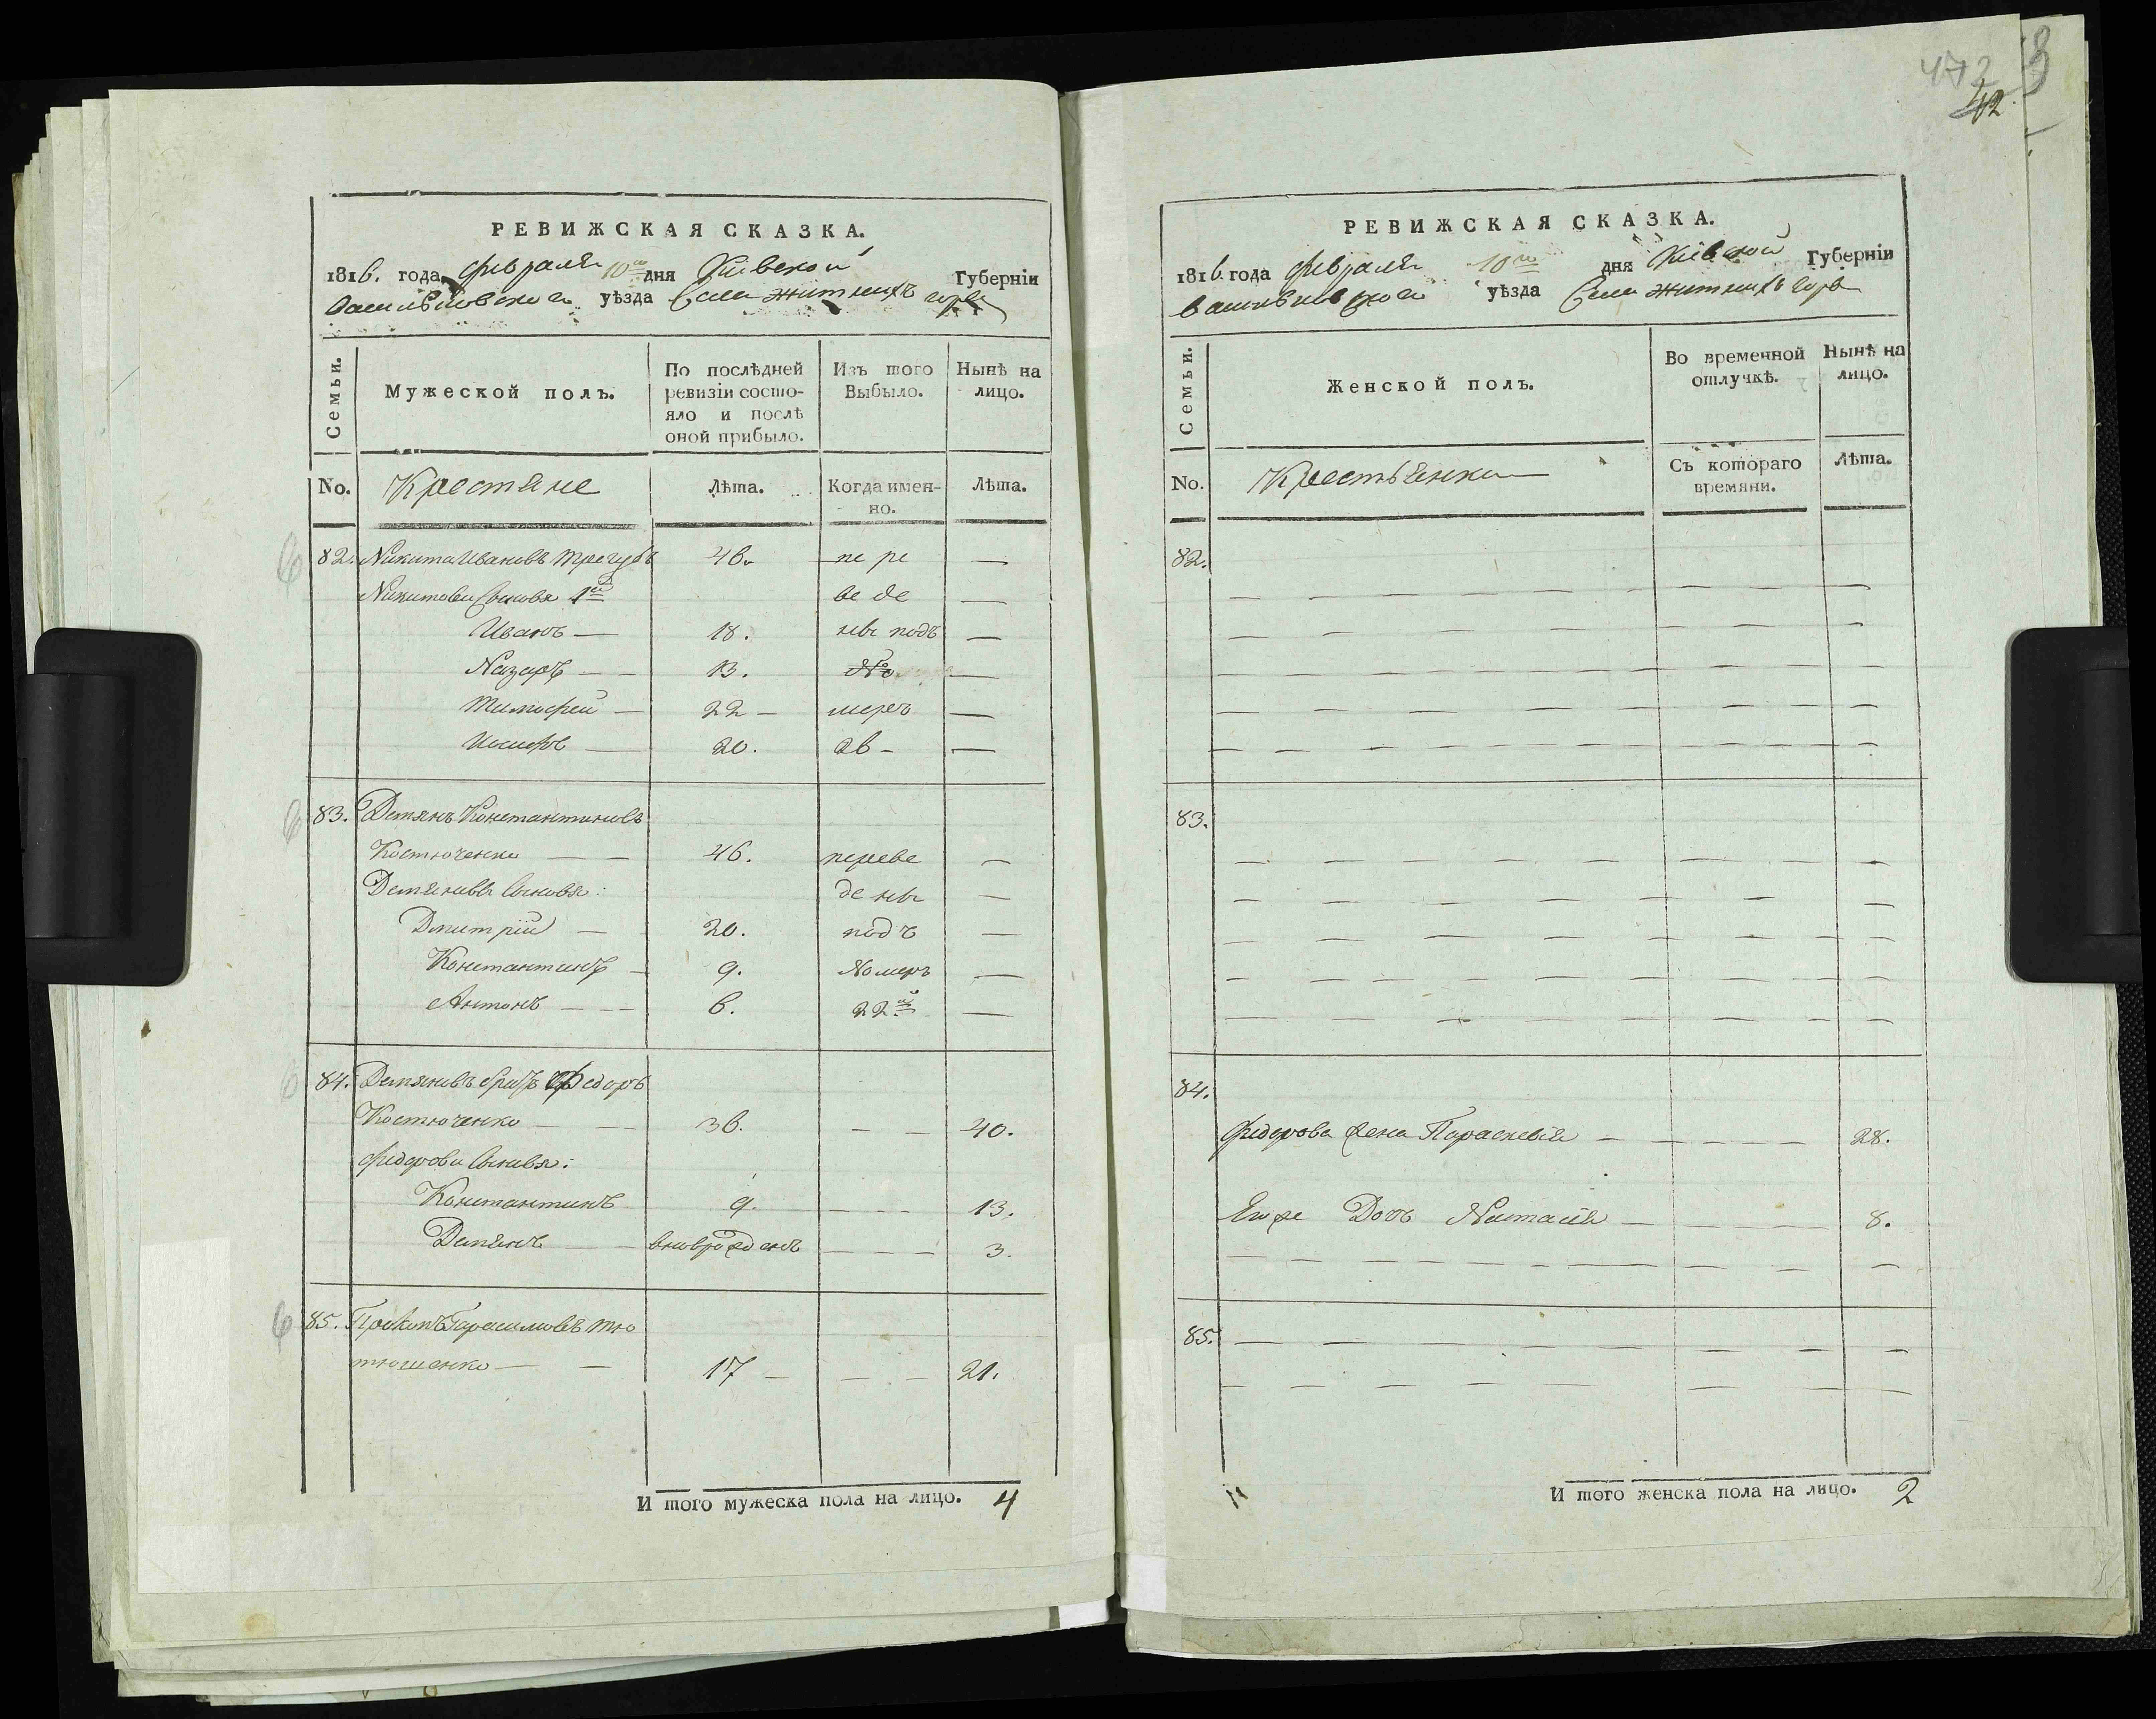 473
42
РЕВИЖСКАЯ СКАЗКА.
1816. года февраля 10го дня Киевской Губерніи
Васильковского уѣзда Села Житнихъ горъ
Семьи.
Мужеской полъ.
По послѣдней ревизіи состояло и послѣ оной прибыло.
Изъ того Выбыло.
Нынѣ на лицо.
No. Крестяне Лѣта. Когда именно. Лѣта.
82. Никита Ивановъ Трегубъ 46. пе ре —
Никитови Сыновя 1й ве де —
Иванъ — 18. ны подъ —
Назаръ — — 13. No —
Тимофей — 22 — меръ —
— 20. 26 — —
83. Демянъ Константиновъ
Костюченко — — 46. переве —
Демяновы Сыновя: де ны —
Дмитрій — 20. подъ —
Константинъ — 9. Номеръ —
Антонъ — — 6. 22й —
84. Демяновъ братъ Федоръ
Костюченко — — 36. — — 40.
Федорови Сыновя:
Константинъ 9. — — — 13.
Демянъ — — вновъ рожденъ — — — 3.
85. Прокопъ Гарасимовъ Тю
тюшенко — — 17 — — — 21.
И того мужеска пола на лицо. 4
РЕВИЖСКАЯ СКАЗКА.
1816. года февраля 10го дня Киевской Губерніи
Васильковского уѣзда Села Житнихъ горъ
Семьи.
Женской полъ.
Во временной отлучкѣ.
Нынѣ на лицо.
No. Крестьянки Съ котораго времяни. Лѣта.
82.
83.
84.
Федорова жена Параскевія — — — — — 28.
Его же Дочь Настасія — — — — 8.
85.
И того женска пола на лицо. 2